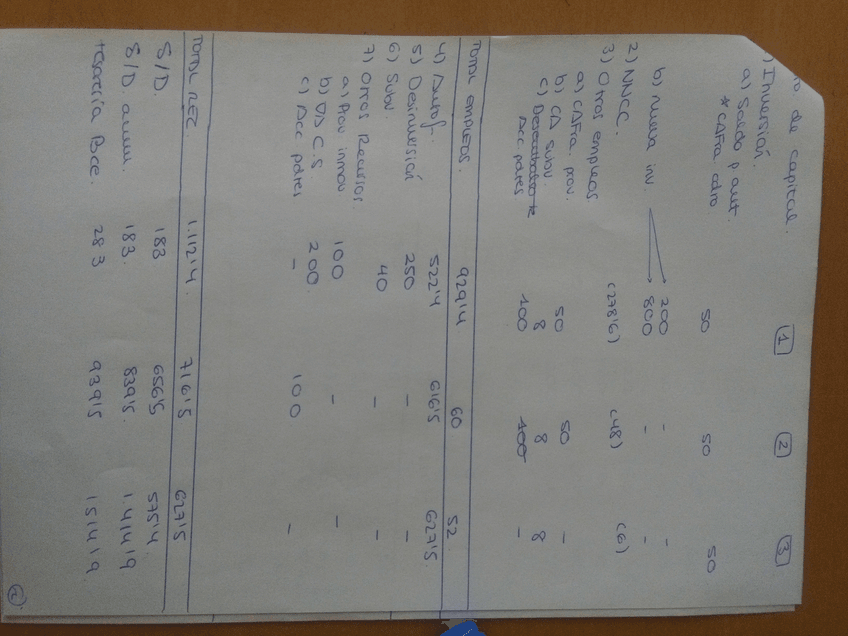 de capital.
1 2 3
Inversión.
a) Saldo p ant.
* CAFra. 50 50 50
b) nueva inv. 200 - -
800 - -
2) NNCC. (278'6) (48) (6)
3) Otros empleos
a) CAFra. prov.
b) CA subv. 50 50 -
c) 8 8 8
Acc. pdtes 100 100 -
TOTAL EMPLEOS. 929'4 60 52
4) Autof. 522'4 616'5 627'5
5) Desinversión 250 - -
6) Subv. 40 - -
7) Otros Recursos.
a) Prov inmov 100 - -
b) C.S 200
c) Acc pdtes - 100 -
TOTAL REC. 1.112'4. 716'5 627'5
S/D. 183 656'5 575'4
S/D. acum. 183. 839'5. 1.414'9
Bce. 283 939'5 1.514'9
2